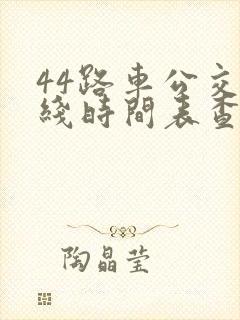 44路車公交
綫時間表查
陶晶莹